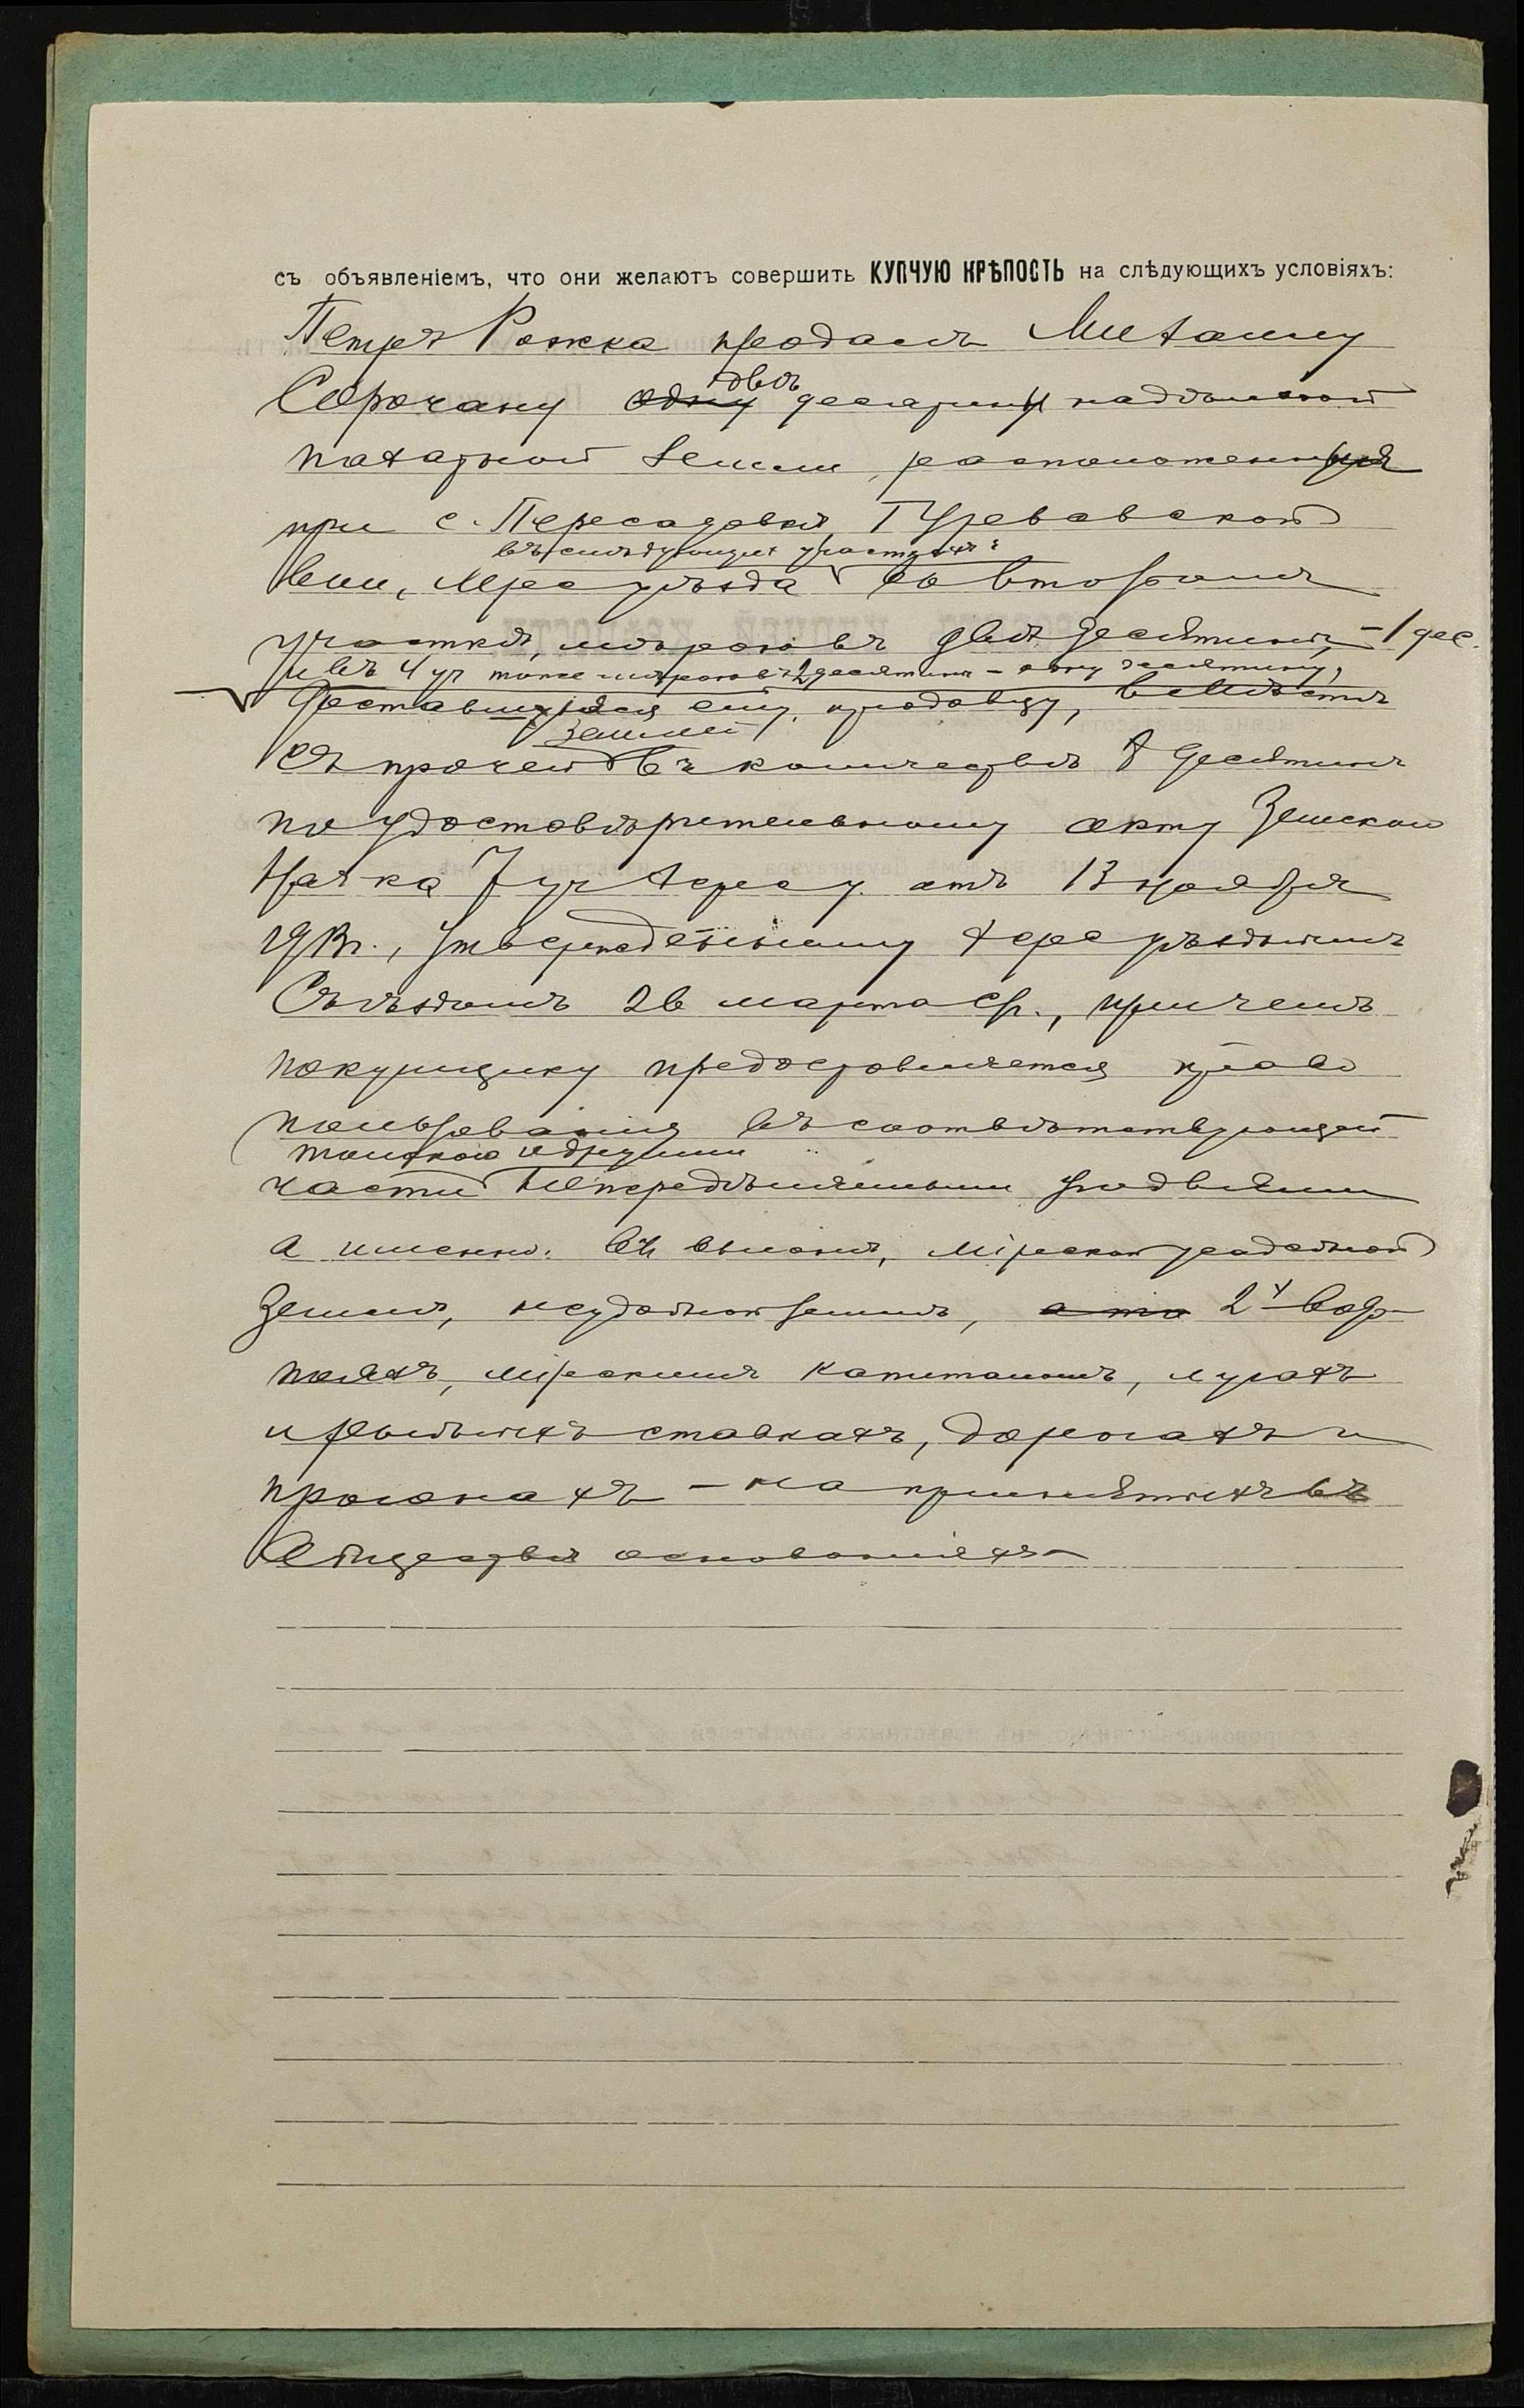 съ объявленіемъ, что они желаютъ совершить КУПЧУЮ КРѢПОСТЬ на слѣдующихъ условіяхъ:
Петръ Рожка продалъ Михаилу
двѣ
Сорочану одну десятины надѣльной
пахатной земли, расположенной
при с. Пересадовкѣ,
въ слѣдующихъ участкахъ:
вол., Хер уѣзда во второмъ
участкѣ, мѣрою въ двѣ десятины, – 1 дес.
и въ 4 уч тоже мѣрою въ 2 десятины – одну десятину,
доставшуюся ему, продавцу, вмѣстѣ
землей
съ прочей въ количествѣ 8 десятинъ
по удостовѣрительному акту Земскаго
Нач-ка 7 уч Херс у. отъ 13 ноября
191 г., утвержденному Херс уѣзднымъ
Съѣздомъ 26 марта с/г., при чемъ
покупщику предоставляется право
пользованія въ соотвѣтствующей
толокою и другими
части непередѣляемыми угодьями
а именно: въ выгонѣ, мірской усадебной
землѣ, неудобной землѣ, 2-хъ
поляхъ, мірскимъ капиталомъ, лугахъ
и рыбныхъ ставкахъ, дорогахъ и
прогонахъ – на принятыхъ въ
Обществѣ основаніяхъ –